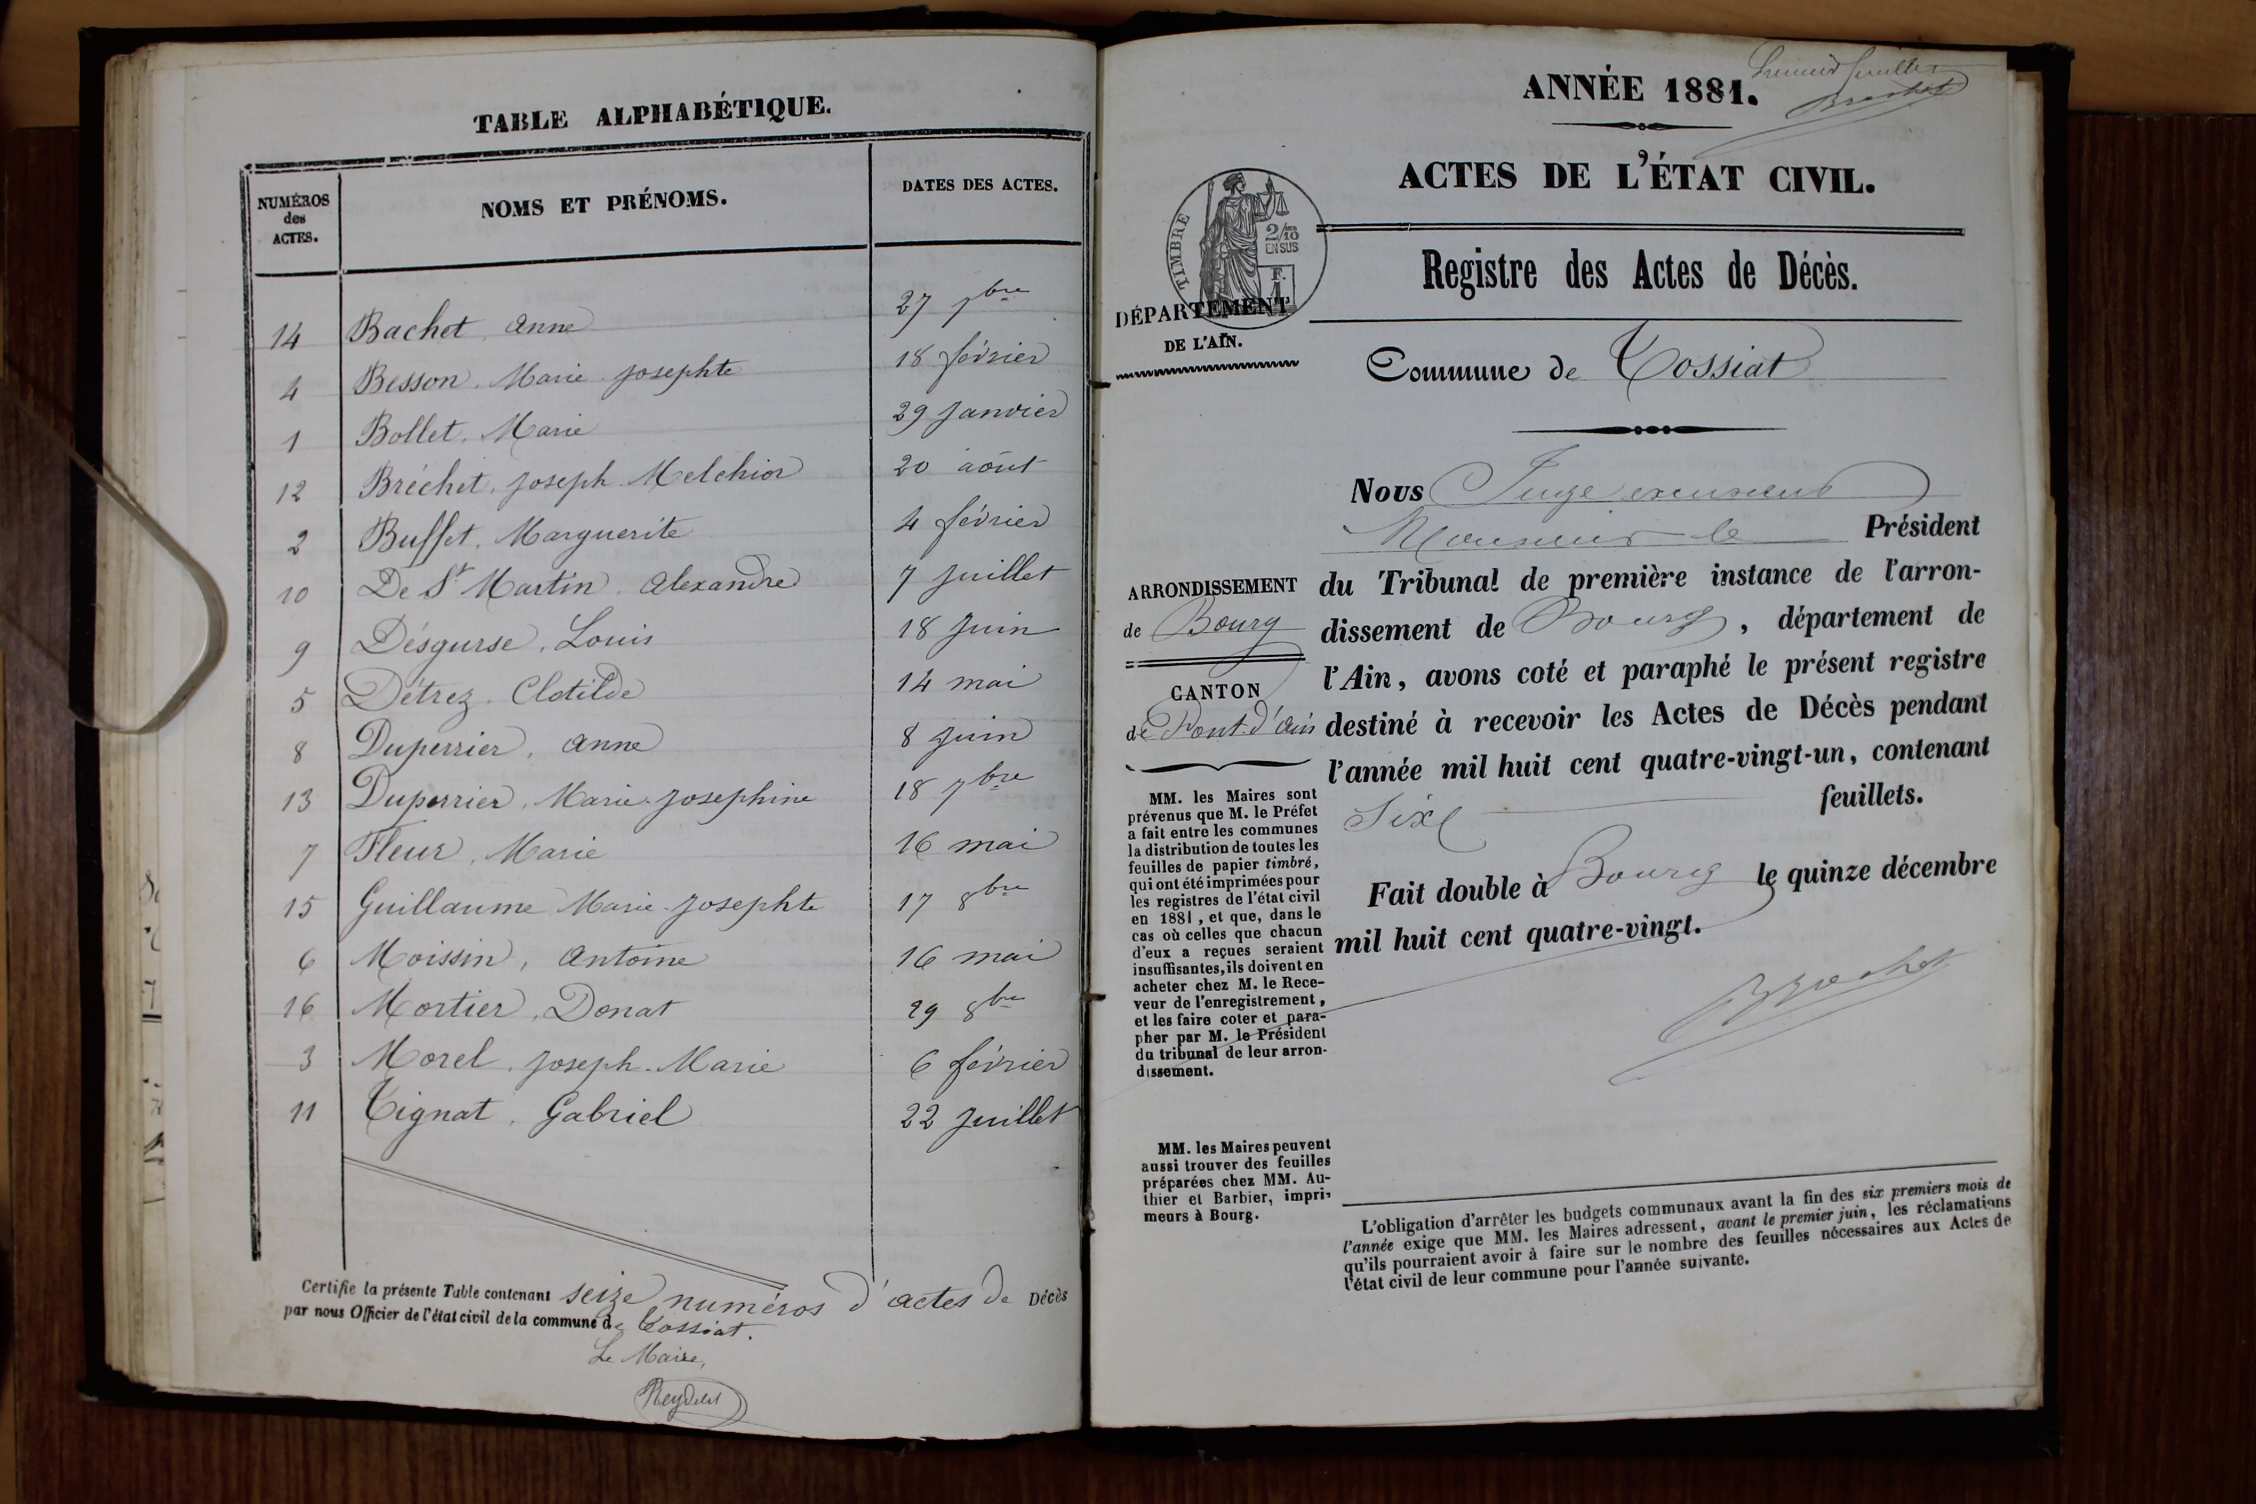 TABLE ALPHABÉTIQUE.
NUMÉROS des ACTES. NOMS ET PRÉNOMS. DATES DES ACTES.
14 Bachet, Anne 27 7bre
4 Besson, Marie Josephte 18 février
1 Bollet, Marie 29 Janvier
12 Bréchet, Joseph Melchior 20 août
2 Buffet, Marguerite 4 février
10 De St Martin, Alexandre 7 Juillet
9 Désgurse, Louis 18 Juin
5 Détrez, Clotilde 14 mai
8 Duperrier, Anne 8 Juin
13 Duperrier, Marie-Josephine 18 7bre
7 Fleur, Marie 16 mai
15 Guillaume Marie-Josephte 17 8bre
6 Moissin, Antoine 16 mai
16 Mortier, Donat 29 8bre
3 Morel, Joseph-Marie 6 février
11 Tignat, Gabriel 22 Juillet
Certifie la présente Table contenant seize numéros d'actes de Décès
par nous Officier de l'état civil de la commune de Tossiat.
Le Maire,
Reydelet
Premier feuillet
Brochet
ANNÉE 1881.
ACTES DE L'ÉTAT CIVIL.
TIMBRE
2/10
EN SUS
F.
1
Registre des Actes de Décès.
DÉPARTEMENT
DE L'AIN.
Commune de Tossiat
Nous Juge
Monsieur le Président
du Tribunal de première instance de l'arron-
dissement de Bourg, département de
l'Ain, avons coté et paraphé le présent registre
destiné à recevoir les Actes de Décès pendant
l'année mil huit cent quatre-vingt-un, contenant
Six feuillets.
Fait double à Bourg le quinze décembre
mil huit cent quatre-vingt.
Brochet
ARRONDISSEMENT
de Bourg
CANTON
de Pont-d'Ain
MM. les Maires sont
prévenus que M. le Préfet
a fait entre les communes
la distribution de toutes les
feuilles de papier timbré,
qui ont été imprimées pour
les registres de l'état civil
en 1881, et que, dans le
cas où celles que chacun
d'eux a reçues seraient
insuffisantes, ils doivent en
acheter chez M. le Rece-
veur de l'enregistrement,
et les faire coter et para-
pher par M. le Président
du tribunal de leur arron-
dissement.
MM. les Maires peuvent
aussi trouver des feuilles
préparées chez MM. Au-
thier et Barbier, impri-
meurs à Bourg.
L'obligation d'arrêter les budgets communaux avant la fin des six premiers mois de
l'année exige que MM. les Maires adressent, avant le premier juin, les réclamations
qu'ils pourraient avoir à faire sur le nombre des feuilles nécessaires aux Actes de
l'état civil de leur commune pour l'année suivante.